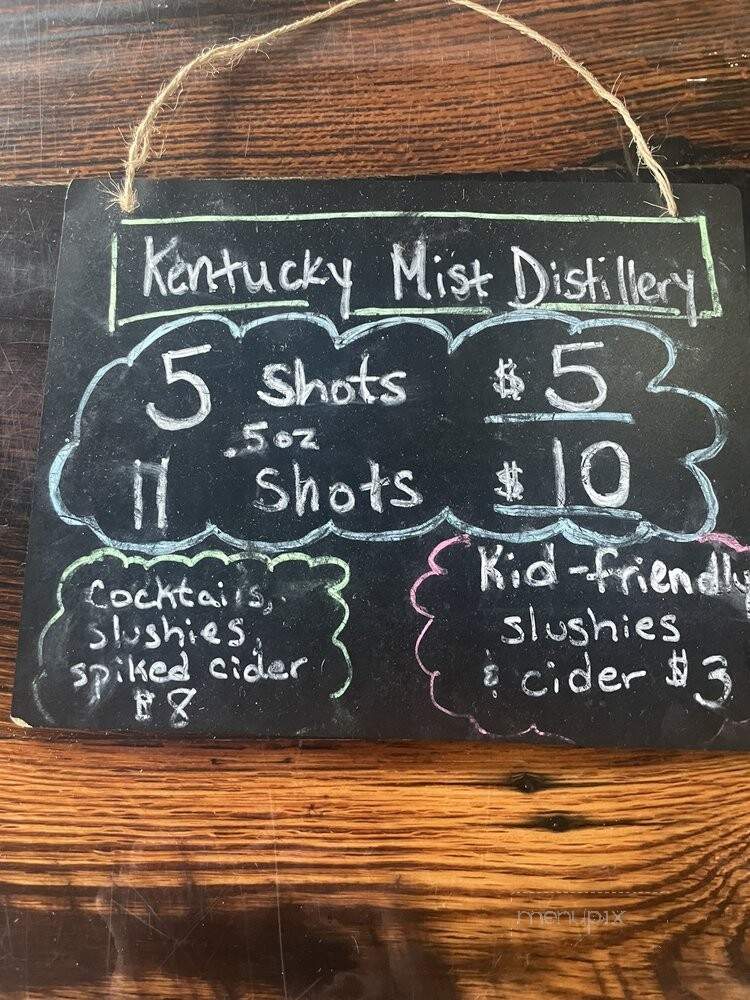 Kentucky Mist Distillery
5 Shots $5
.5oz
11 Shots $10
Cocktails,
slushies,
spiked cider
$8
Kid-friendly
slushies
& cider $3
menupix